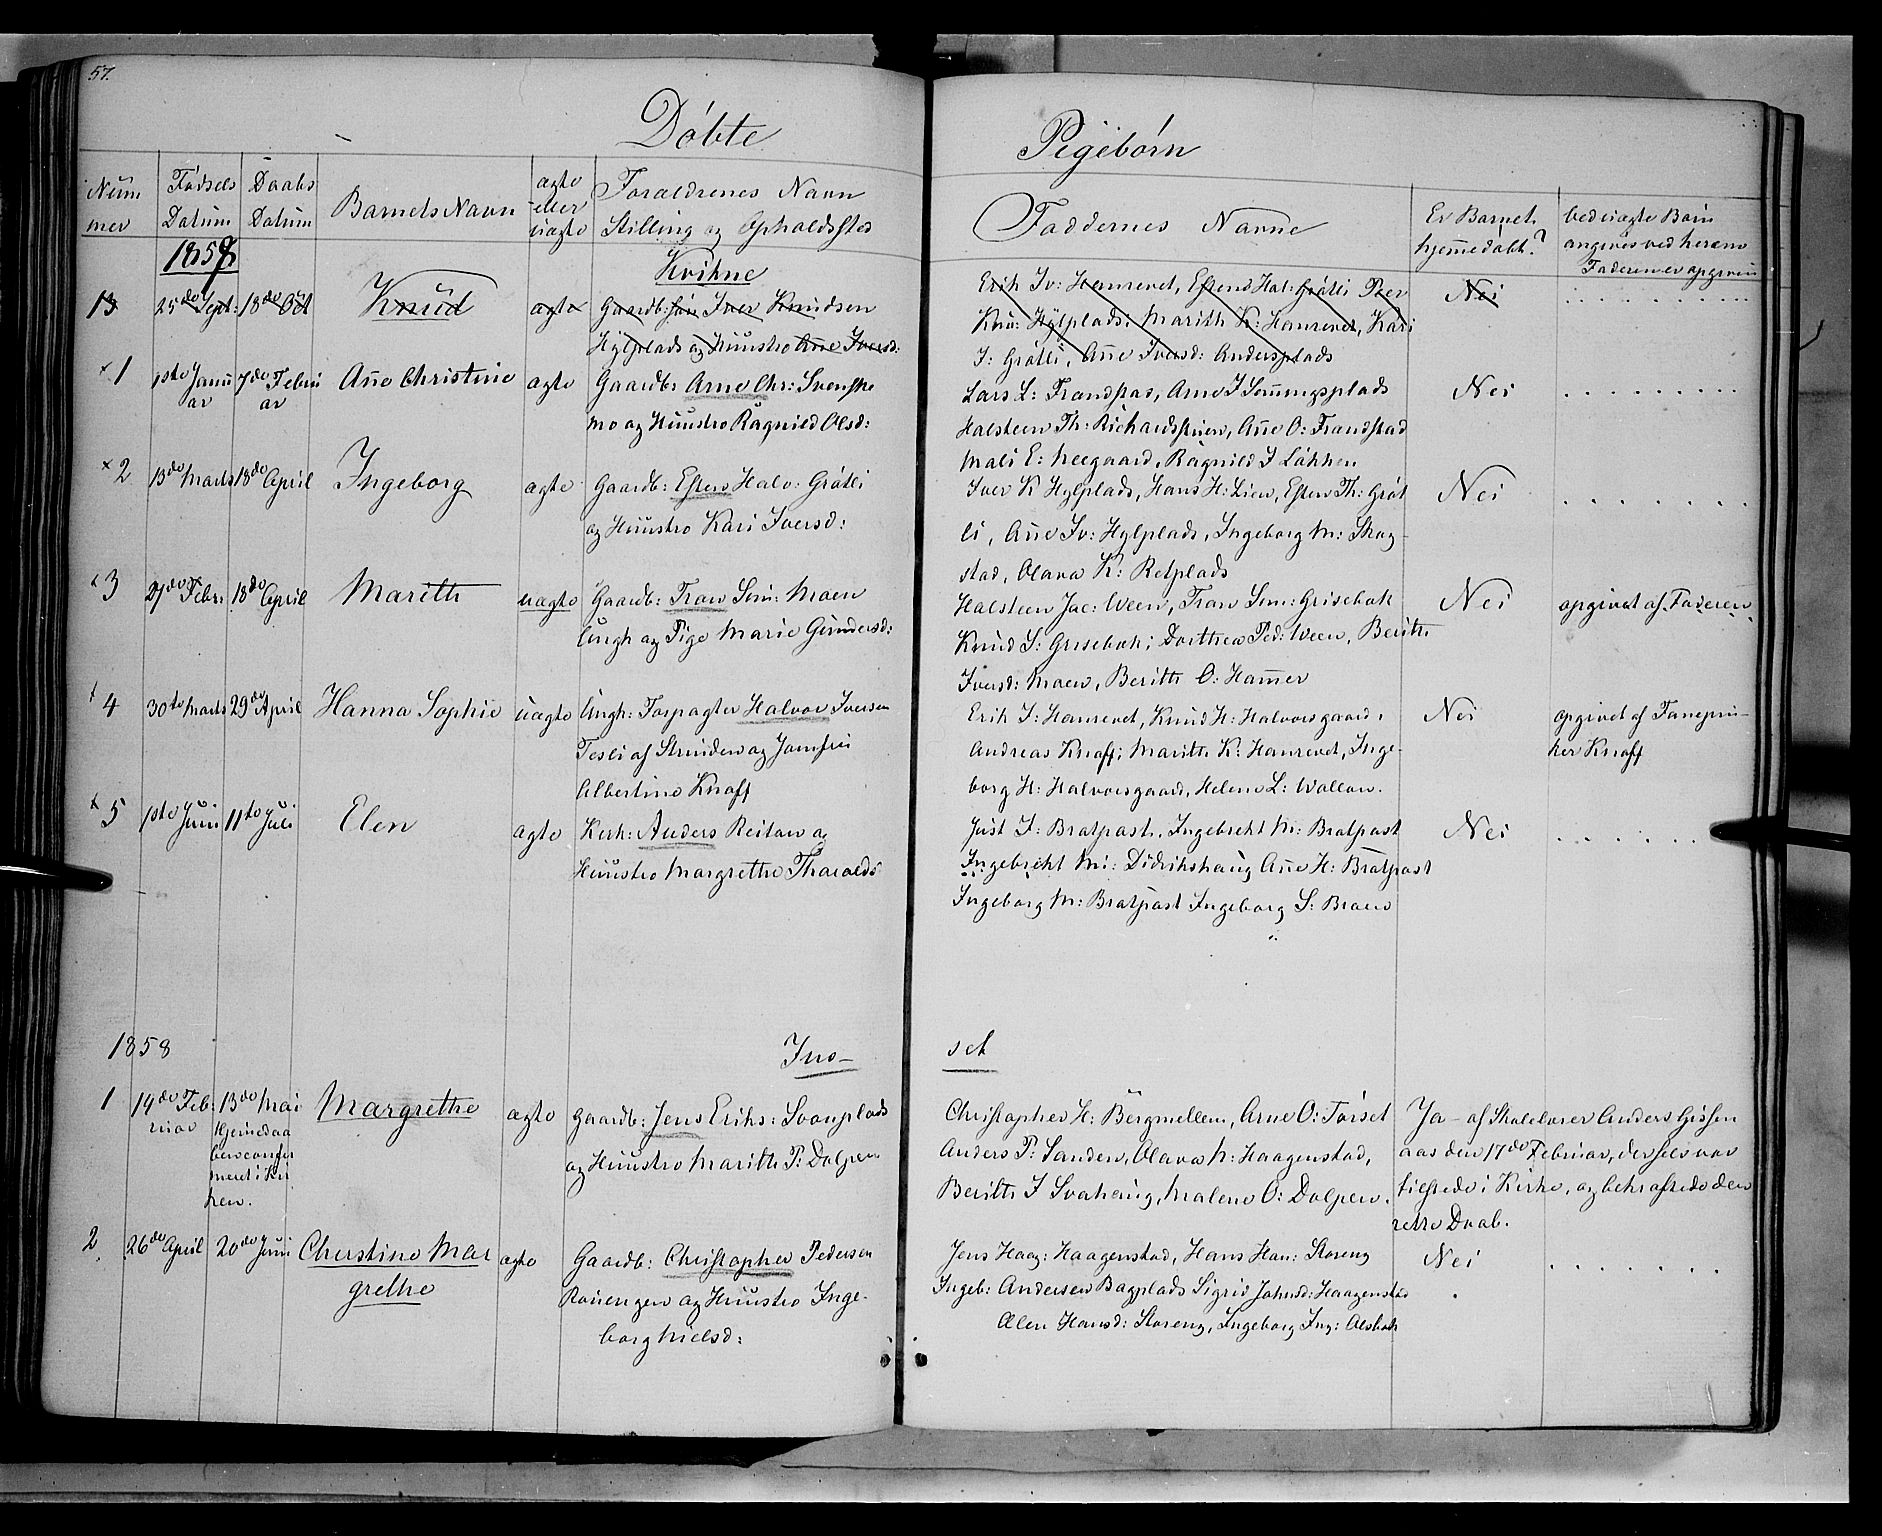 57.
Döbte Pigebörn
Num̄
mer
Födsels
Datum
Daabs
Datum
Barnets Navn
ægte
eller
uægte
Forældrenes Navn
Stilling og Opholdssted
Faddernes Navne
Er Barnet
hjem̄edöbt?
ved uægte Börn
angives ved hvem
Faderen er opgiven
1858
Kvikne
13 25de Sept: 18de Oct Knud ægte Gaardb: Iver Knudsen
Hylplads og Huustro Ane Iversd:
Erik Iv: Hanrevet, Estens Hal: Gråtli Peer
Knu: Hylplads, Marith K: Hanrevet, Kari
I: Gråtli, Ane Iversd: Andersplads
Nei
1 1ste Janu
ar
7de Febru
ar
Ane Christine ægte Gaardb: Arne Chr: Svenske
mo og Huustro Ragnild Olsd:
Lars L: Frandstad, Arne I
Halsteen Th: Richardstuen, Ane O: Frandstad
Mali E: Neegaard, Ragnild I Läkken
Nei
2 13de Marts 18de April Ingeborg ægte Gaardb: Esten Halv: Gråtli
og Huustro Kari Iversd:
Iver K Hylplads, Hans H: Lien, Esten Th: Gråt
li, Ane Iv: Hylplads, Ingeborg M: Skog
stad, Olava K: Retplads
Nei
3 27de Febr: 18de April Marith uægte Gaardb: Tron Sim: Moen
Ungk og Pige Marie Gundersd:
Halsteen Jac: Ween, Tron Sim: Grisebak
Knud S: Grisebak, Dorthea Ped: Ween, Berith
Iversd: Moen, Berith O: Ham̄er
Nei
opgivet af Faderen
4 30te Marts 29de April Hanna Sophie uægte Ungk: Forpagter Halvor Iversen
Tesli af Strinden og Jomfru
Albertine Knoff
Erik I: Hanrevet, Knud H: Halvorsgaard,
Andreas Knoff; Marith K: Hanrevet, Inge-
borg H: Halvorsgaard, Helene L: Wollan.
Nei
opgivet af
ker Knoff
5 1ste Juni 11te Juli Elen ægte Kirk: Anders Reitan og
Huustro Margrethe Tharalds
Just I: Bratpast, Ingebrekt M: Bratpast
Ingebrekt M: Didrikshaug Ane H: Bratpast
Ingeborg M: Bratpast Ingeborg S: Broen
Nei
1858 Ins- set
1 14de Feb:
ruar
13de Mai
Hjem̄edaa
ben confir
meret i Kir
ken.
Margrethe ægte Gaardb: Jens Eriks: Svanplads
og Huustro Marith P: Dolpen
Christopher H: Bergmellem, Arne O: Torset
Anders P: Sanden, Olava N: Haagenstad,
Berith I Svahaug, Malene O: Dolpen.
Ja - af Skolelærer Anders Gissen
aas den 17de Februar, der selv var
tilstede i Kirke, og bekræftede den
rette Daab.
2 26de April 20de Juni Christine Mar
grethe
ægte Gaardb: Christopher Pedersen
Rönengen og Huustro Inge-
borg Nielsd:
Jens Haag: Haagenstad, Hans Han: Storeng
Ingeb: Andersen Bagplads Sigrid Johnsd: Haagenstad
Olen Hansd: Storeng, Ingeborg Ing: Olsbak
Nei